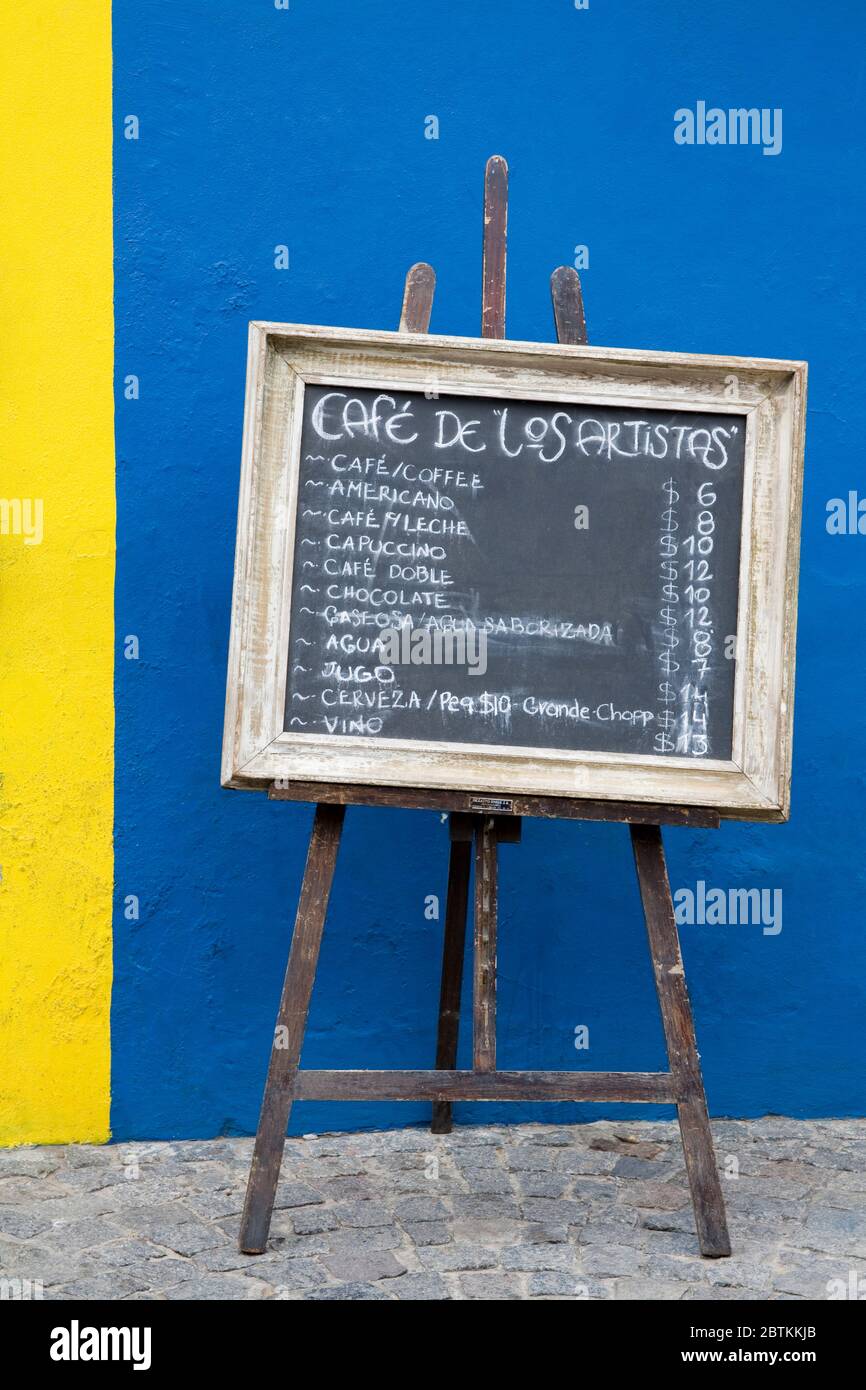 CAFÉ DE "LOS ARTISTAS"
~ CAFÉ/COFFEE $ 6
~ AMERICANO $ 8
~ CAFÉ C/LECHE $ 10
~ CAPUCCINO $ 12
~ CAFÉ DOBLE $ 10
~ CHOCOLATE $ 12
~ GASEOSA/AGUA SABORIZADA $ 8
~ AGUA $ 7
~ JUGO $ 14
~ CERVEZA/Peq $10 - Grande-Chopp $ 14
~ VINO $ 13
alamy
Image ID: 2BTKKJB
www.alamy.com